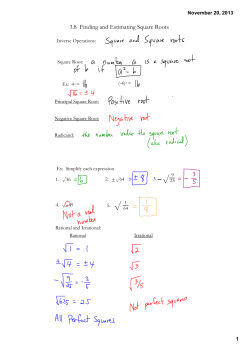 November 20, 2013
3.8 Finding and Estimating Square Roots
Inverse Operations: Square and Square roots
Square Root: a number a is a square root of b if a² = b
Ex: 4² = 16 (-4)² = 16
√16 = ± 4
Principal Square Root: Positive root
Negative Square Root: Negative root
Radicand: the number under the square root
(aka radical)
Ex: Simplify each expression
1. √36 = 6 2. ± √64 = ± 8 3. -√9/25 = - 3/5
4. Not a real number 5. √1/64 = 1/8
Rational and Irrational:
Rational Irrational
√1 = 1 √2
± √4 = ± 4 √3
-√9/25 = -3/5 √3/5
√625 = 25 Not perfect squares
All Perfect Squares
1